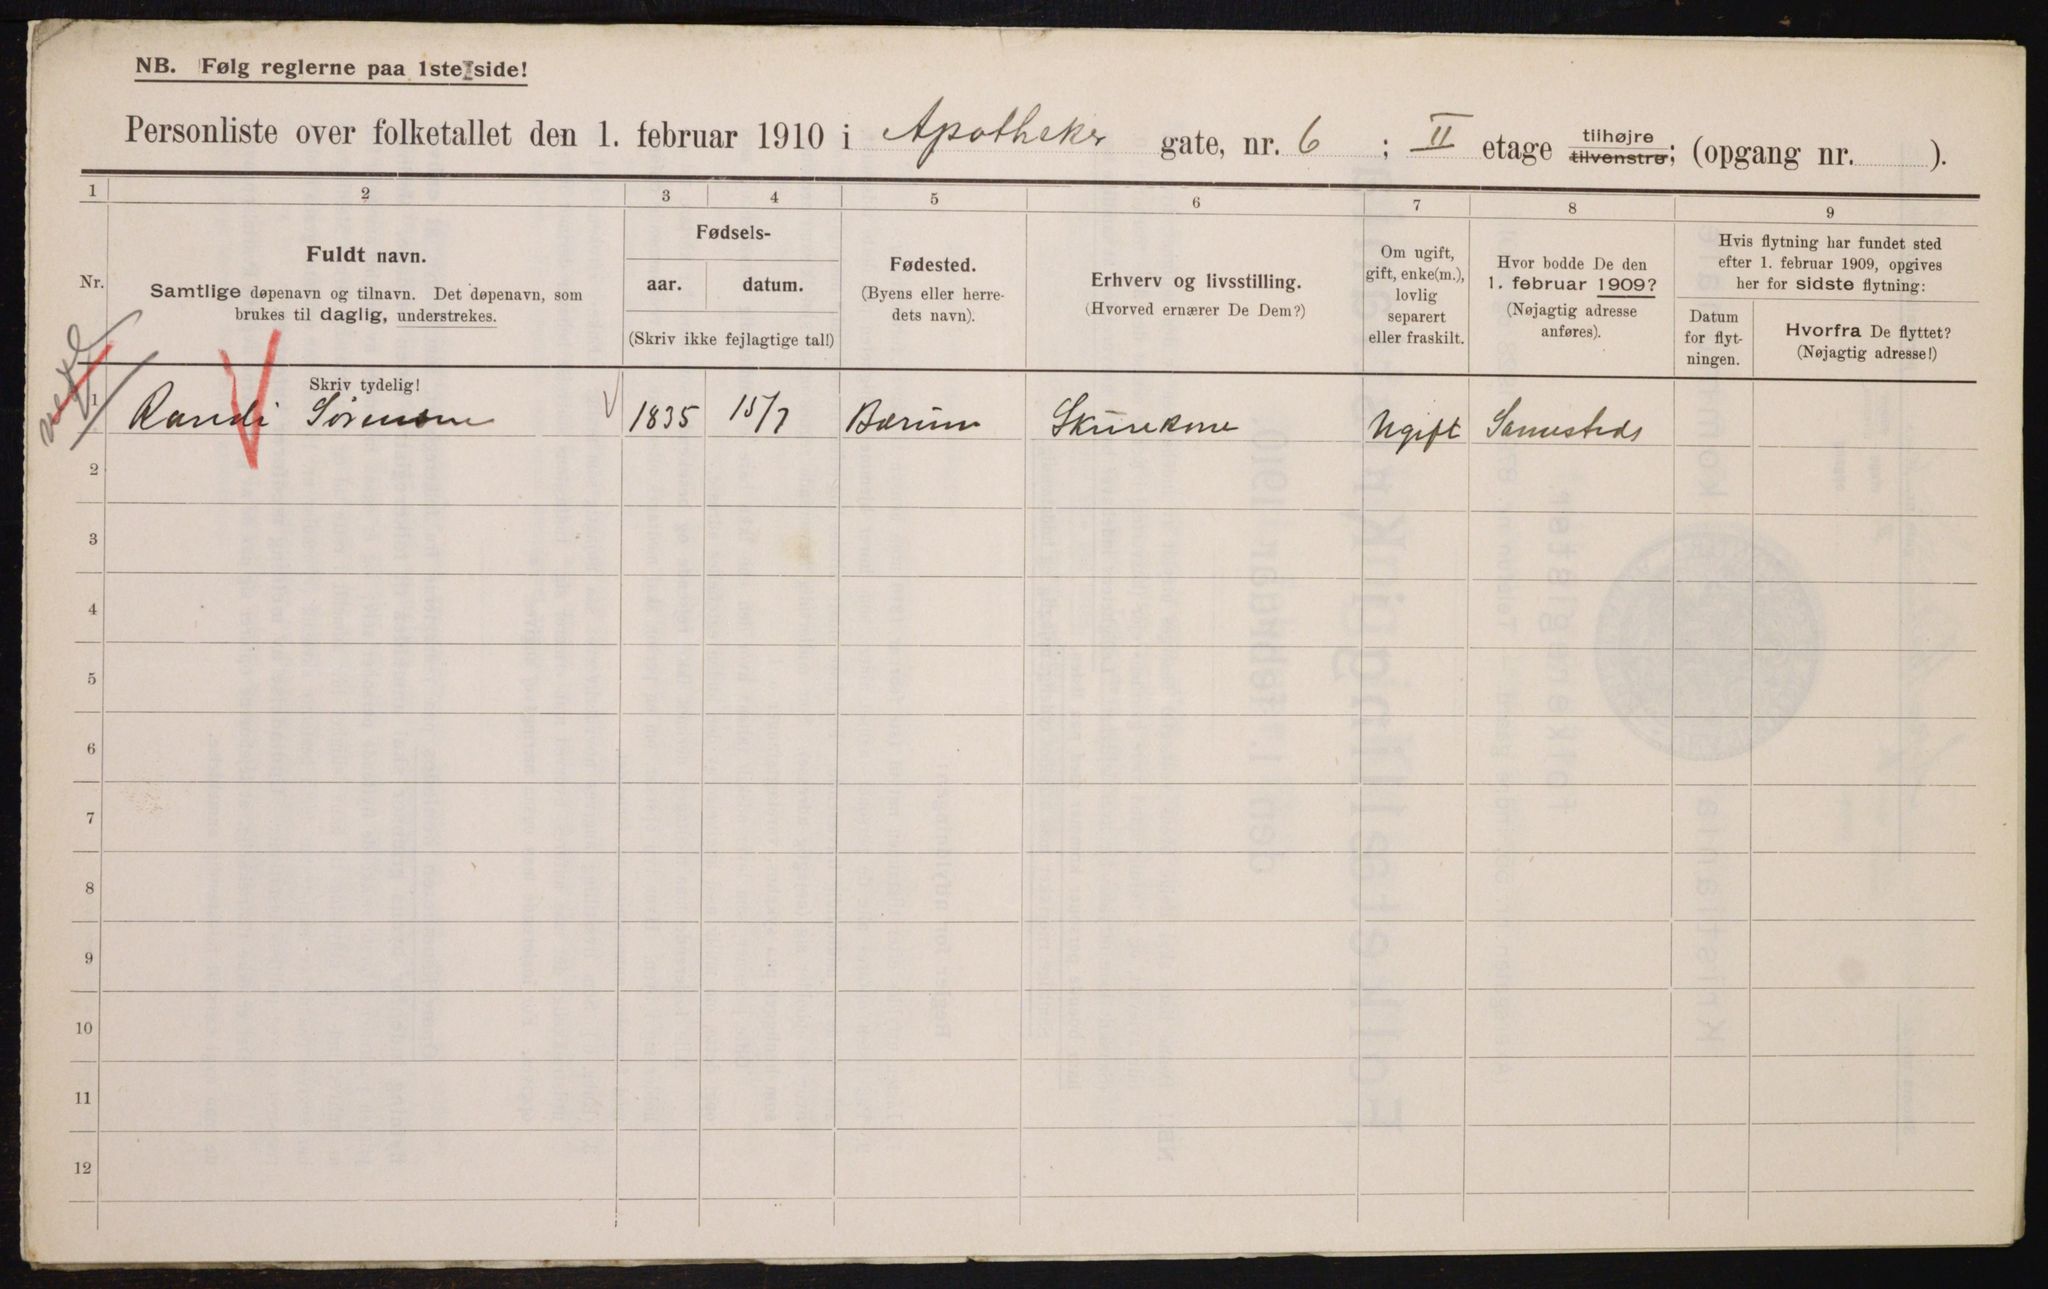 NB. Følg reglerne paa 1ste side!
Personliste over folketallet den 1. februar 1910 i Apotheker gate, nr. 6 ; II etage tilhøjre tilvenstre; (opgang nr. ).
1 2 3 4 5 6 7 8 9
Nr.
Fuldt navn.
Samtlige døpenavn og tilnavn. Det døpenavn, som
brukes til daglig, understrekes.
Skriv tydelig!
Fødsels-
aar. datum.
(Skriv ikke fejlagtige tal!)
Fødested.
(Byens eller herre-
dets navn).
Erhverv og livsstilling.
(Hvorved ernærer De Dem?)
Om ugift,
gift, enke(m.),
lovlig
separert
eller fraskilt.
Hvor bodde De den
1. februar 1909?
(Nøjagtig adresse
anføres).
Hvis flytning har fundet sted
efter 1. februar 1909, opgives
her for sidste flytning:
Datum
for flyt-
ningen.
Hvorfra De flyttet?
(Nøjagtig adresse!)
1 Randi Sørensen 1835 15/7 Bærum Skurekone Ugift Sammesteds
2
3
4
5
6
7
8
9
10
11
12